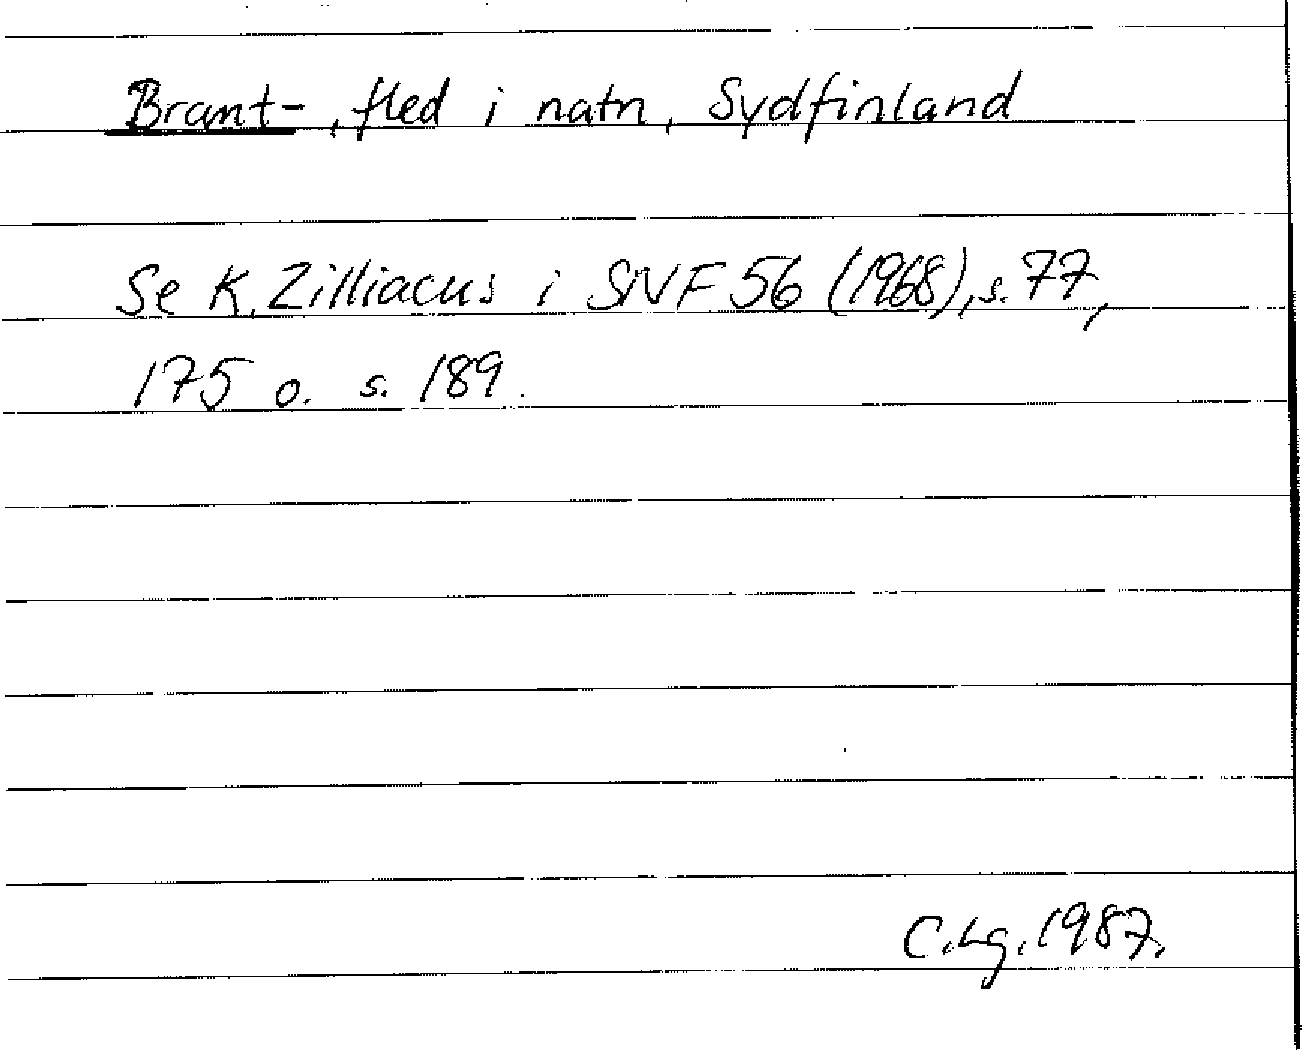 Brant-, fled i natn, Sydfinland
Se K. Zilliacus i SNF 56 (1968), s. 77,
175 o. s. 189.
C.Lg. 1987.